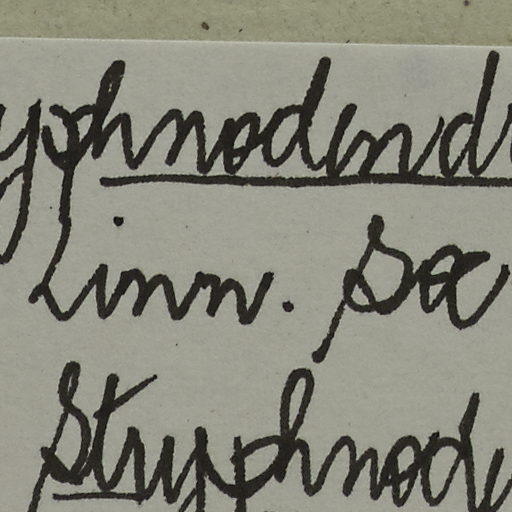 yphnodendr
Linn. Soc
Stryphnode